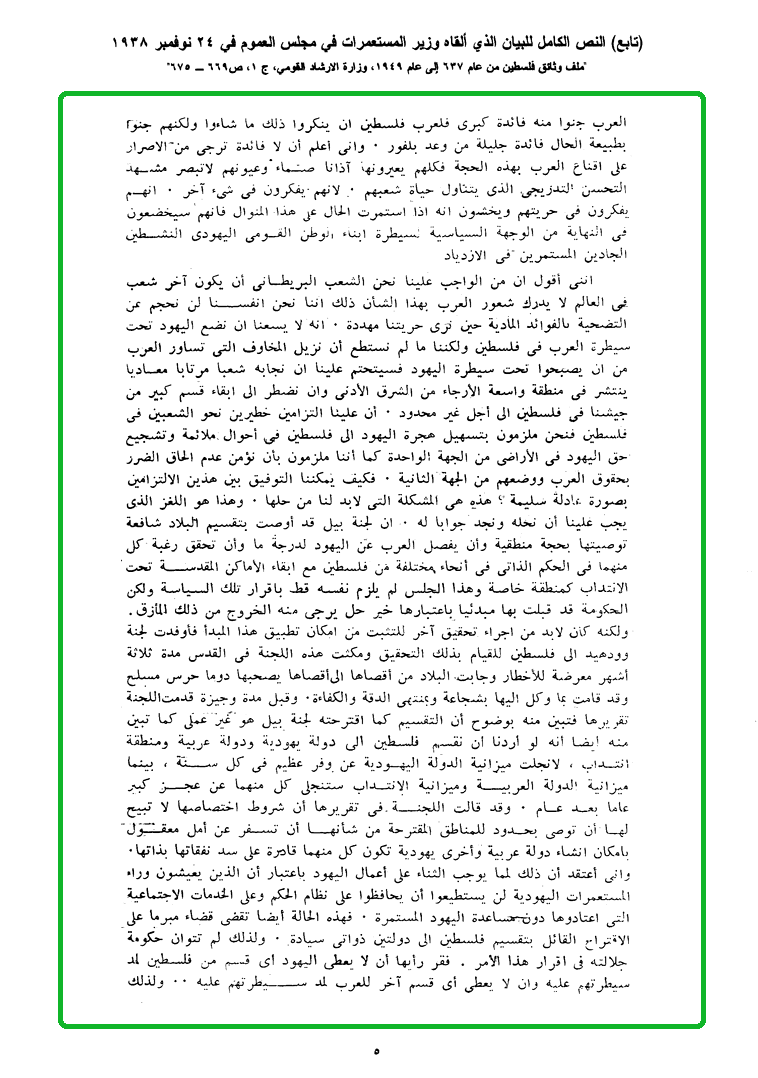 (تابع) النص الكامل للبيان الذي ألقاه وزير المستعمرات في مجلس العموم في ٢٤ نوفمبر ١٩٣٨
"ملف وثائق فلسطين من عام ٦٣٧ إلى عام ١٩٤٩، وزارة الارشاد القومي، ج ١، ص٦٦٩ ــ ٦٧٥"
العرب جنوا منه فائدة كبرى فلعرب فلسطين ان ينكروا ذلك ما شاءوا ولكنهم جنوا
بطبيعة الحال فائدة جليلة من وعد بلفور ٠ وانى أعلم أن لا فائدة ترجى من الاصرار
على اقناع العرب بهذه الحجة فكلهم يعيرونها آذانا صماء وعيونهم لاتبصر مشهد
التحسن التدريجى الذى يتناول حياة شعبهم ٠ لانهم يفكرون فى شىء آخر ٠ انهم
يفكرون فى حريتهم ويخشون انه اذا استمرت الحال على هذا المنوال فانهم سيخضعون
فى النهاية من الوجهة السياسية لسيطرة ابناء الوطن القومى اليهودى النشطين
الجادين المستمرين فى الازدياد
اننى أقول ان من الواجب علينا نحن الشعب البريطانى أن يكون آخر شعب
فى العالم لا يدرك شعور العرب بهذا الشأن ذلك اننا نحن انفسنا لن نحجم عن
التضحية بالفوائد المادية حين نرى حريتنا مهددة ٠ انه لا يسعنا ان نضع اليهود تحت
سيطرة العرب فى فلسطين ولكننا ما لم نستطع أن نزيل المخاوف التى تساور العرب
من ان يصبحوا تحت سيطرة اليهود فسيتحتم علينا ان نجابه شعبا مرتابا معاديا
ينتشر فى منطقة واسعة الأرجاء من الشرق الأدنى وان نضطر الى ابقاء قسم كبير من
جيشنا فى فلسطين الى أجل غير محدود ٠ أن علينا التزامين خطيرين نحو الشعبين فى
فلسطين فنحن ملزمون بتسهيل هجرة اليهود الى فلسطين فى أحوال ملائمة وتشجيع
حق اليهود فى الأراضى من الجهة الواحدة كما أننا ملزمون بأن نؤمن عدم الحاق الضرر
بحقوق العرب ووضعهم من الجهة الثانية ٠ فكيف يمكننا التوفيق بين هذين الالتزامين
بصورة عادلة سليمة ؟ هذه هى المشكلة التى لابد لنا من حلها ٠ وهذا هو اللغز الذى
يجب علينا أن نحله ونجد جوابا له ٠ ان لجنة بيل قد أوصت بتقسيم البلاد شافعة
توصيتها بحجة منطقية وأن يفصل العرب عن اليهود لدرجة ما وأن تحقق رغبة كل
منهما فى الحكم الذاتى فى أنحاء مختلفة من فلسطين مع ابقاء الأماكن المقدسة تحت
الانتداب كمنطقة خاصة وهذا المجلس لم يلزم نفسه قط باقرار تلك السياسة ولكن
الحكومة قد قبلت بها مبدئيا باعتبارها خير حل يرجى منه الخروج من ذلك المأزق .
ولكنه كان لابد من اجراء تحقيق آخر للتثبت من امكان تطبيق هذا المبدأ فأوفدت لجنة
وودهيد الى فلسطين للقيام بذلك التحقيق ومكثت هذه اللجنة فى القدس مدة ثلاثة
أشهر معرضة للأخطار وجابت البلاد من أقصاها الى أقصاها يصحبها دوما حرس مسلح
وقد قامت بما وكل اليها بشجاعة وبمنتهى الدقة والكفاءة٠ وقبل مدة وجيزة قدمت اللجنة
تقريرها فتبين منه بوضوح أن التقسيم كما اقترحته لجنة بيل هو غير عملى كما تبين
منه ايضا أنه لو أردنا أن نقسم فلسطين الى دولة يهودية ودولة عربية ومنطقة
انتداب ، لانجلت ميزانية الدولة اليهودية عن وفر عظيم فى كل سنة ، بينما
ميزانية الدولة العربية وميزانية الانتداب ستنجلى كل منهما عن عجز كبير
عاما بعد عام ٠ وقد قالت اللجنة فى تقريرها أن شروط اختصاصها لا تبيح
لها أن توصى بحدود للمناطق المقترحة من شأنها أن تسفر عن أمل معقول
بامكان انشاء دولة عربية وأخرى يهودية تكون كل منهما قادرة على سد نفقاتها بذاتها٠
وانى أعتقد أن ذلك لما يوجب الثناء على أعمال اليهود باعتبار أن الذين يعيشون وراء
المستعمرات اليهودية لن يستطيعوا أن يحافظوا على نظام الحكم وعلى الخدمات الاجتماعية
التى اعتادوها دون مساعدة اليهود المستمرة ٠ فهذه الحالة أيضا تقضى قضاء مبرما على
الاقتراح القائل بتقسيم فلسطين الى دولتين ذواتى سيادة ٠ ولذلك لم تتوان حكومة
جلالته فى اقرار هذا الأمر . فقر رأيها أن لا يعطى اليهود اى قسم من فلسطين لمد
سيطرتهم عليه وان لا يعطى أى قسم آخر للعرب لمد سيطرتهم عليه ٠٠ ولذلك
٥